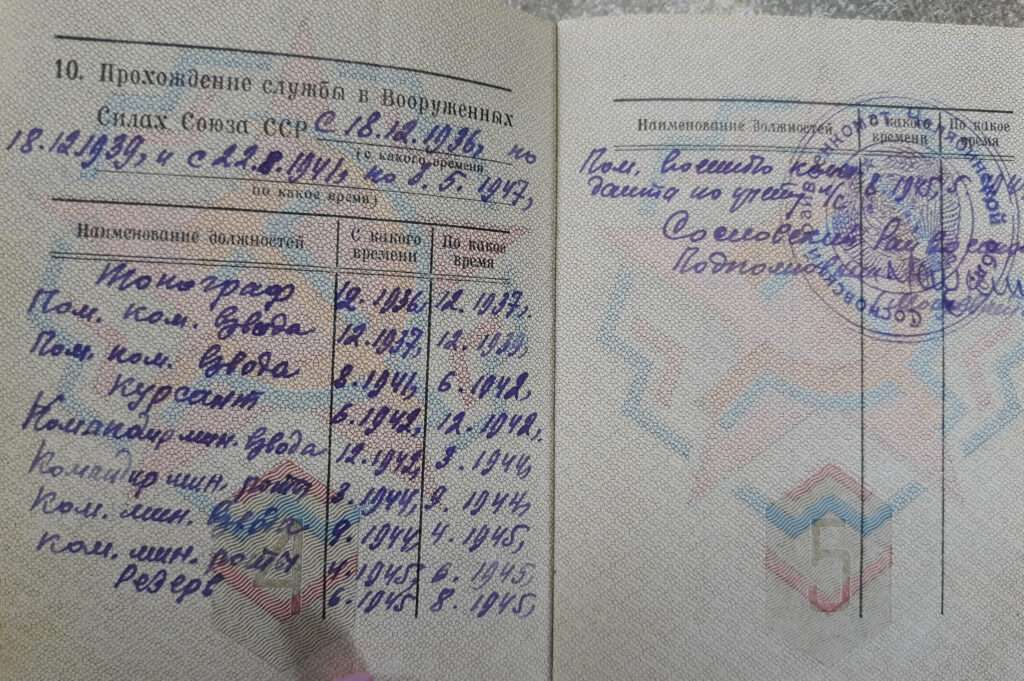 10. Прохождение службы в Вооруженных
Силах Союза ССР с 18.12.1936, по
(с какого времени
18.12.1939, и с 22.8.1941, по 8.5.1947,
по какое время)
Наименование должностей С какого времени По какое время
Тонограф 12.1936, 12.1937,
Пом. ком. взвода 12.1937, 12.1939,
Пом. ком. взвода 8.1941, 6.1942,
Курсант 6.1942, 12.1942,
Командир мин. взвода 12.1942, 3.1944,
Командир мин. роты 3.1944, 9.1944,
Ком. мин. взвода 9.1944, 4.1945,
Ком. мин. роты 4.1945, 6.1945,
Резерв 6.1945 8.1945,
4
Наименование должностей С какого времени По какое время
Пом. военного комен
данта по учету л/с 8.1945, 5.
Сосновский Рай
Подполковник
5